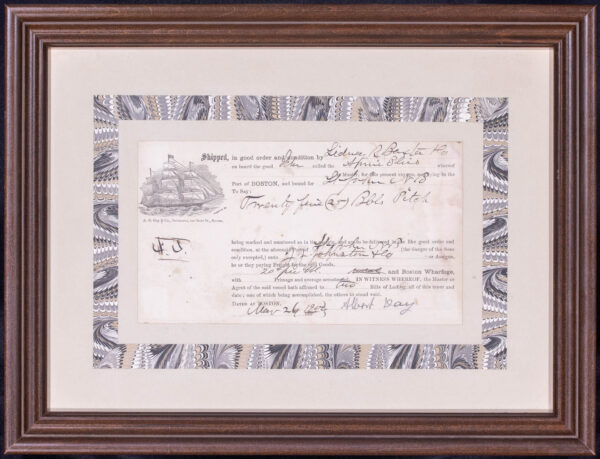 Shipped, in good order and condition by Sidney R Baxter & Co
on board the good called the whereof
Master, for this present voyage, now lying in the
Port of BOSTON, and bound for St John N.B.
To Say:
Twenty five (25) Bbls Pitch
J.J.
being marked and numbered as in the and to be delivered in like good order and
condition, at the aforesaid Port of St John N.B. (the danger of the Seas
only excepted,) unto Johnston & Co or Assigns,
he or they paying Freight for the said Goods,
and Boston Wharfage,
with Primage and average accustomed. IN WITNESS WHEREOF, the Master or
Agent of the said vessel hath affirmed to two Bills of Lading, all of this tenor and
date; one of which being accomplished, the others to stand void.
DATED AT BOSTON,
26 Albert Day